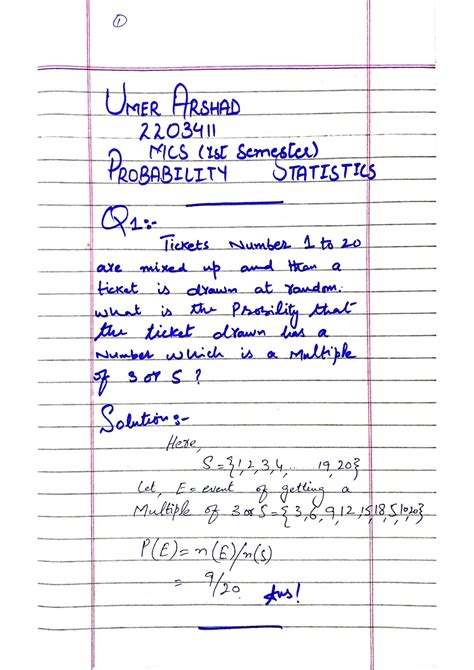 ①
UMER ARSHAD
2203411
MCS (1st Semester)
PROBABILITY STATISTICS
Q1:-
Tickets Number 1 to 20
are mixed up and than a
ticket is drawn at random.
what is the Probility that
the ticket drawn has a
Number which is a Multiple
of 3 or 5 ?
Solution:-
Here,
S={1,2,3,4,.. 19,20}
Let, E = event of getting a
Multiple of 3 or 5={3,6,9,12,15,18,5,10,20}
P(E)= n(E)/n(S)
= 9/20. Ans!